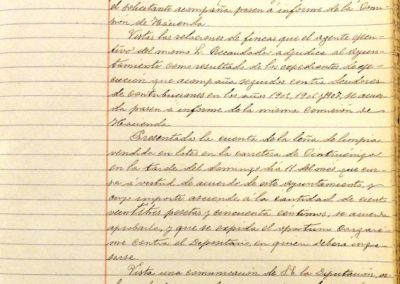 el solicitante acompaña pasen á informe de la Comi-
sion de Hacienda.
Vistas las relaciones de fincas que el agente ejecu-
tivo del mismo S. Recaudador adjudica al Ayun-
tamiento como resultado de los expedientes de eje-
cucion que acompaña seguidos contra deudores
de contribuciones en los años 1905, 1906 y 1907, se acuer-
da pasen á informe de la misma Comision de
Hacienda.
Presentada la cuenta de la leña de limpia
vendida en lotes en la carretera de
en la tarde del domingo dia 18 del mes que cur-
sa, á virtud de acuerdo de este Ayuntamiento, y
cuyo importe asciende á la cantidad de ciento
veintitres pesetas y cincuenta centimos, se acuerda
aprobarla, y que se expida el oportuno cargare-
me contra el Depositario en quien debera ingre-
sarse.
Vista una comunicacion de la Diputación,